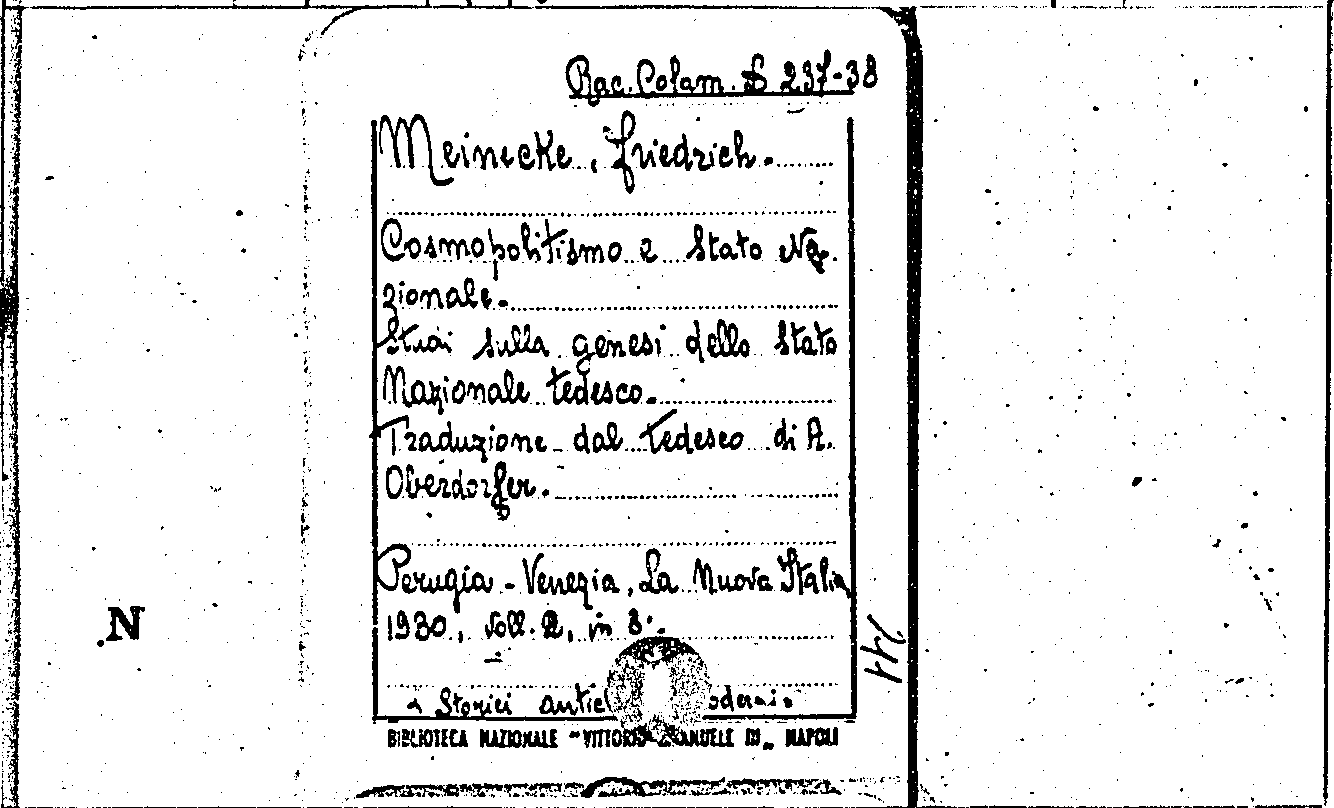 Rac. Colam. B 237-38
Meinecke, Friedrich.
Cosmopolitismo e Stato Na-
zionale.
Studi sulla genesi dello Stato
Nazionale tedesco.
Traduzione dal tedesco di A.
Oberdorfer.
Perugia - Venezia, La Nuova Italia
1930, voll. 2, in 8°.
« Storici antic oderni»
BIBLIOTECA NAZIONALE "VITTORIO EMANUELE III" NAPOLI
N